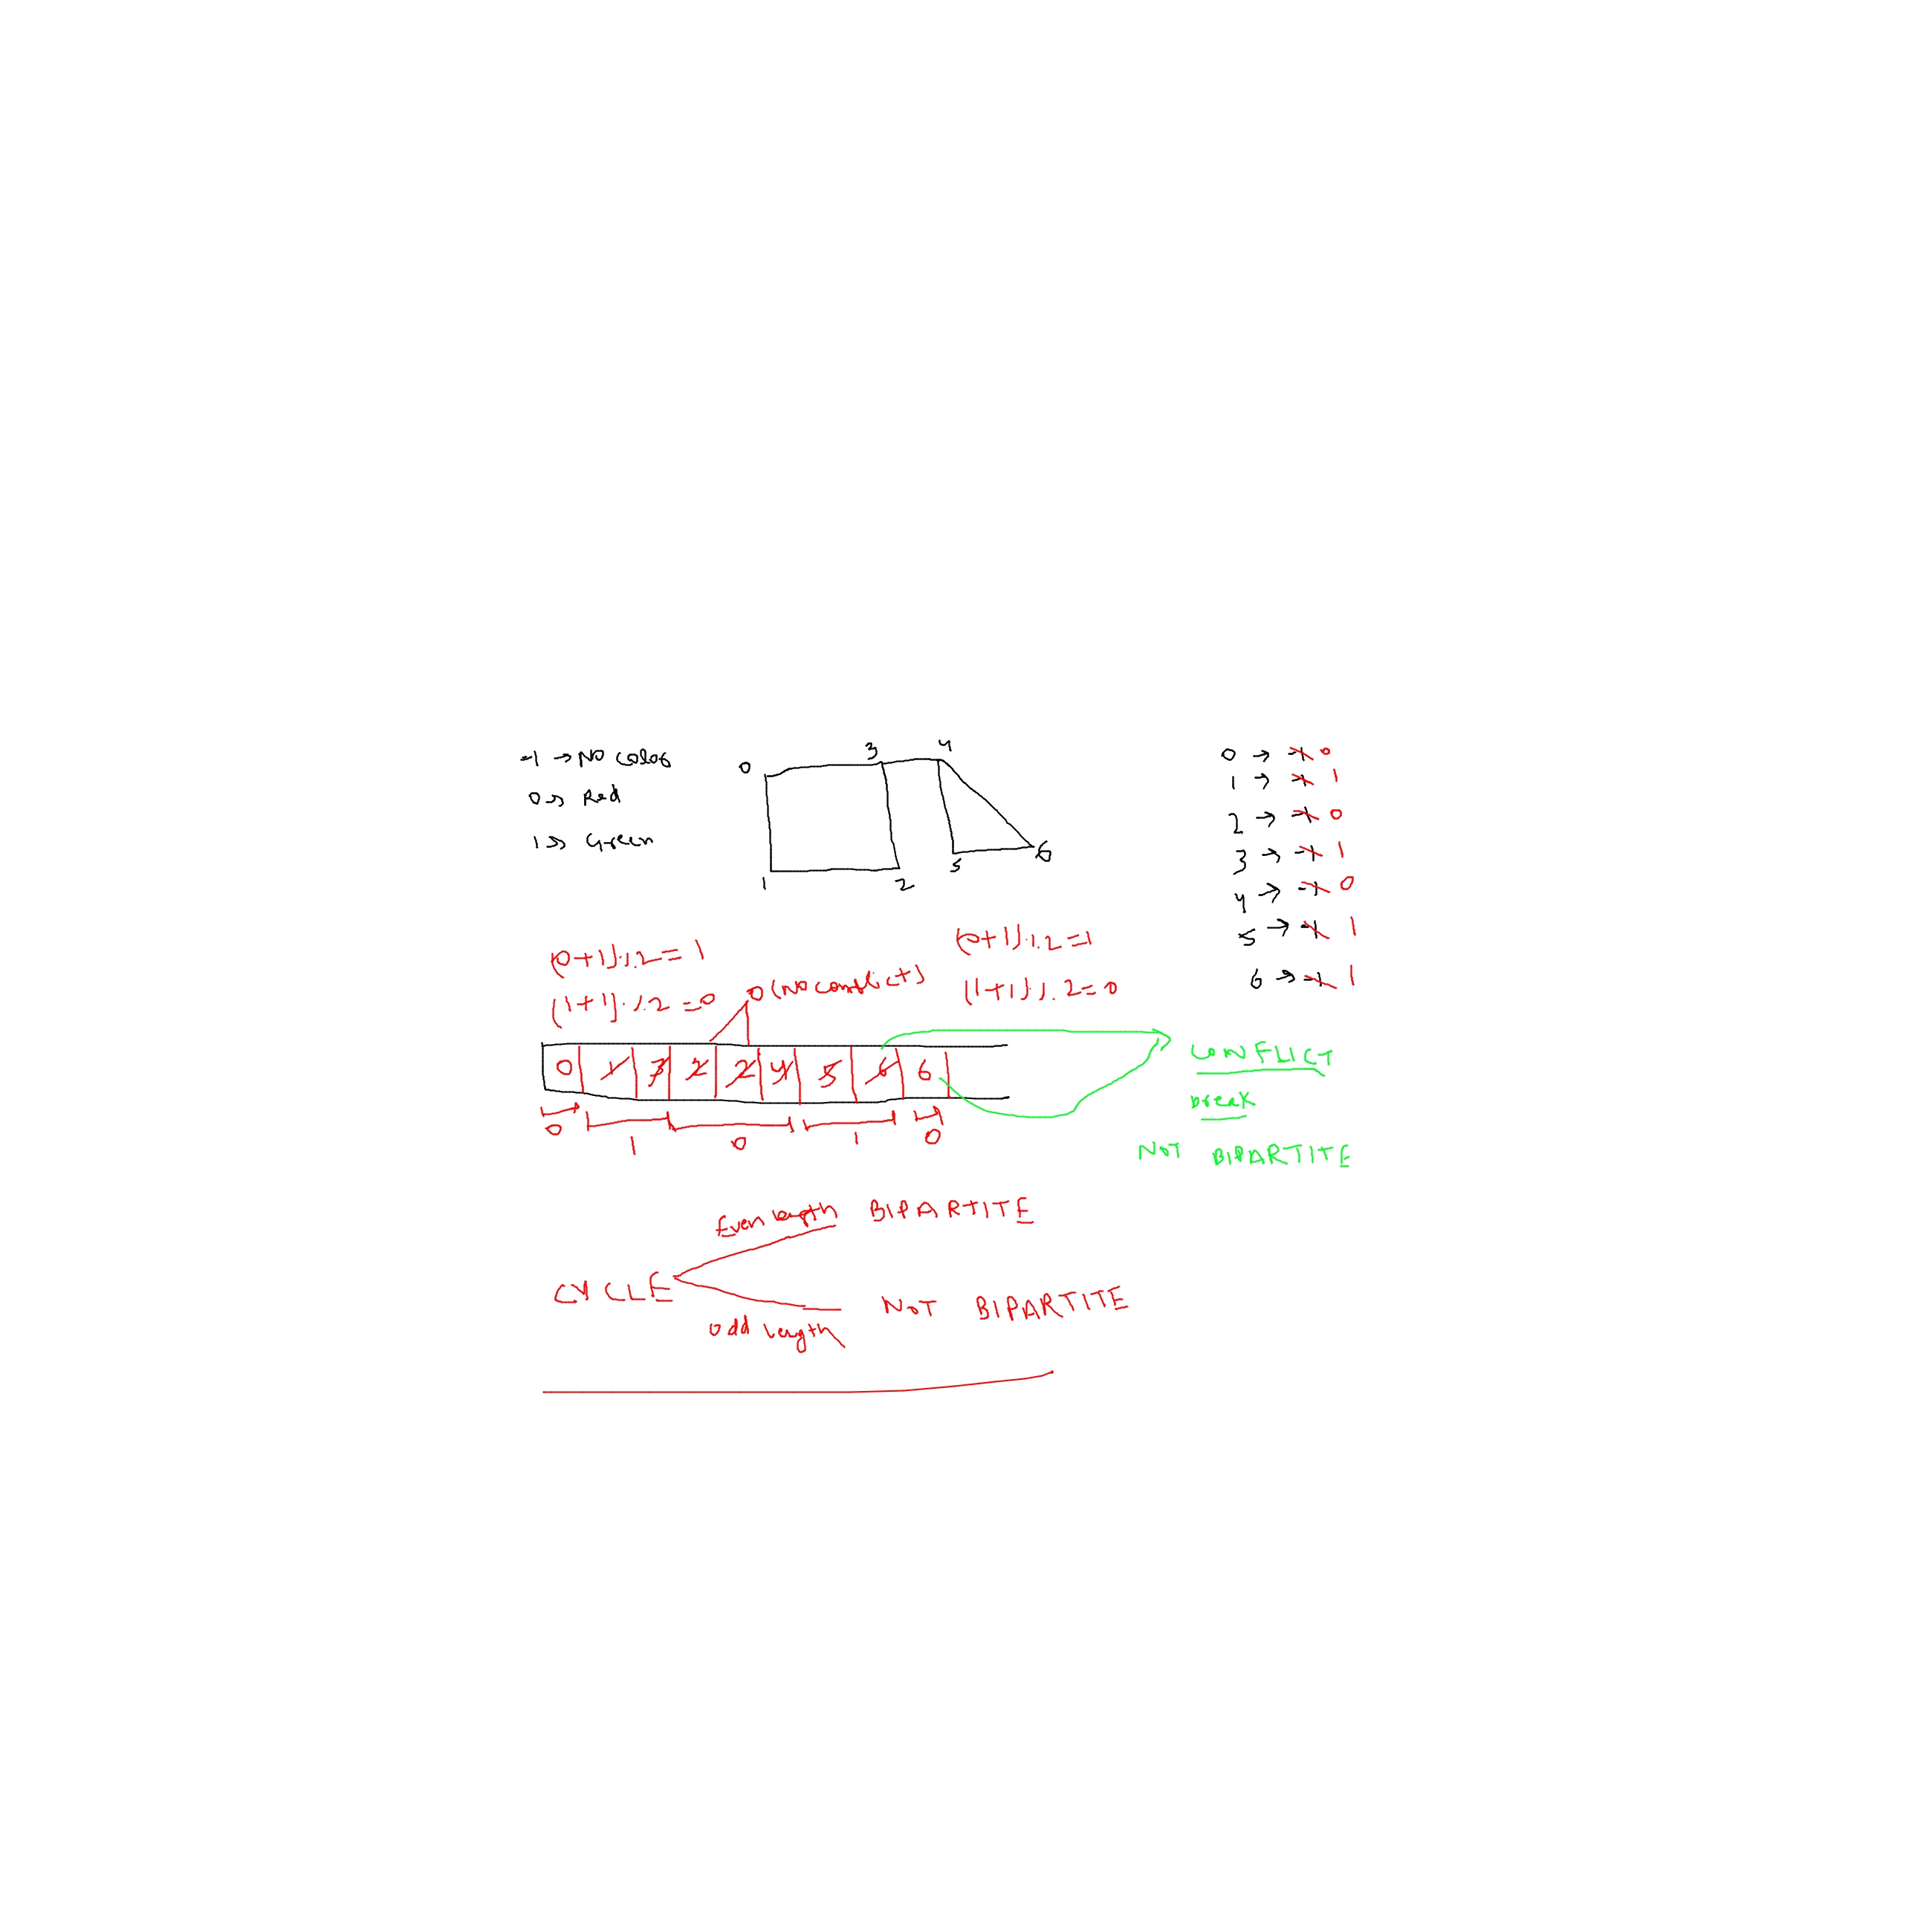 -1 → No color
0 → Red
1 → Green
0 3 4
1 2 5 6
0 → -1 0
1 → -1 1
2 → -1 0
3 → -1 1
4 → -1 0
5 → -1 1
6 → -1 1
(0+1)%2=1
(1+1)%2=0
0 (No conflict)
(0+1)%2=1
(1+1)%2=0
0 1 3 2 2 4 5 6 6
0 1 0 1 0
CONFLICT
break
NOT BIPARTITE
Even length BIPARTITE
CYCLE
Odd length NOT BIPARTITE